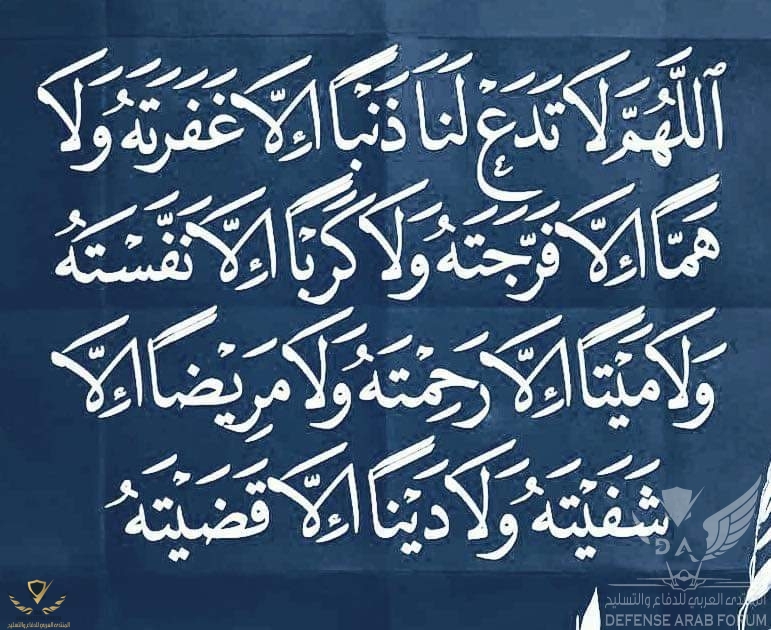 ٱللَّهُمَّ لَا تَدَعْ لَنَا ذَنْبًا إِلَّا غَفَرْتَهُ وَلَا
هَمًّا إِلَّا فَرَّجْتَهُ وَلَا كَرْبًا إِلَّا نَفَّسْتَهُ
وَلَا مَيْتًا إِلَّا رَحِمْتَهُ وَلَا مَرِيْضًا إِلَّا
شَفَيْتَهُ وَلَا دَيْنًا إِلَّا قَضَيْتَهُ
DA
المنتدى العربي للدفاع والتسليح
DEFENSE ARAB FORUM
المنتدى العربي للدفاع والتسليح